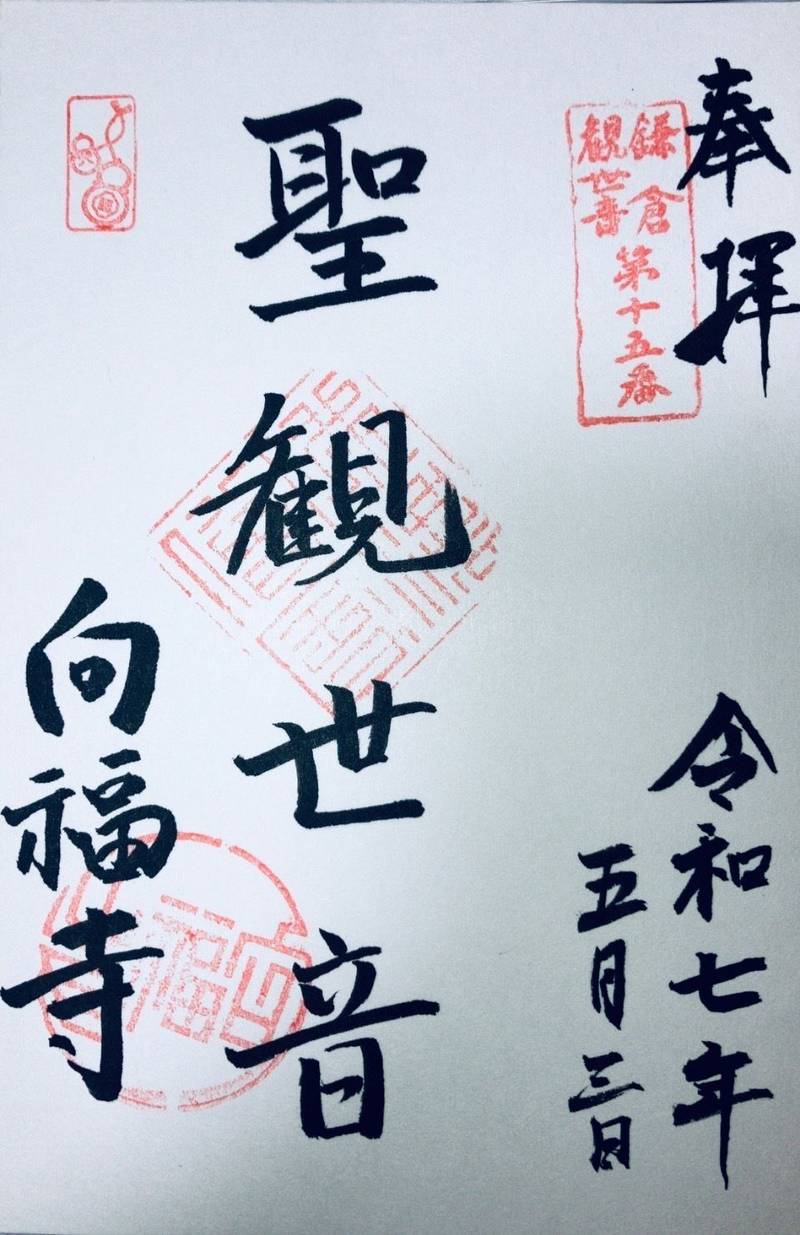 奉拝
令和七年
五月三日
鎌倉
観世音
第十五番
聖観世音
向福寺